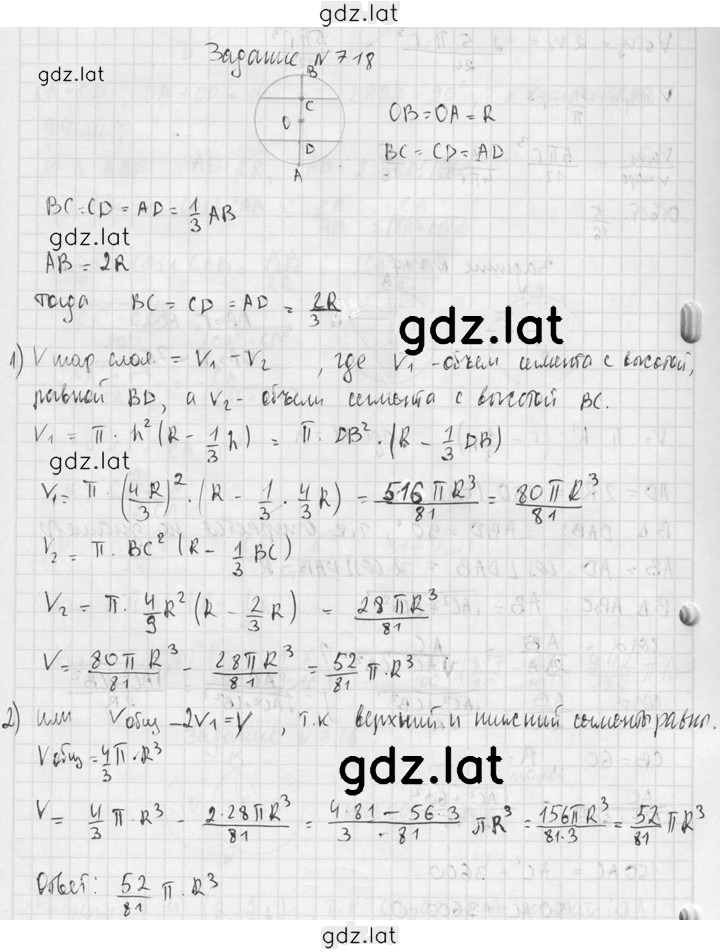 gdz.lat
Задание N 718
gdz.lat
B
C
O
D
A
OB = OA = R
BC = CD = AD
BC = CD = AD = 1/3 AB
gdz.lat
AB = 2R
тогда BC = CD = AD = 2R/3
gdz.lat
1) V шар слоя = V₁ - V₂, где V₁ - объем сегмента с высотой,
равной BD, а V₂ - объем сегмента с высотой BC.
V₁ = π · h² (R - 1/3 h) = π · DB² · (R - 1/3 DB)
gdz.lat
V₁ = π · (4R/3)² · (R - 1/3 · 4/3 R) = 5·16 πR³/81 = 80πR³/81
V₂ = π · BC² (R - 1/3 BC)
V₂ = π · 4/9 R² (R - 2/3 R) = 28πR³/81
V = 80π R³/81 - 28π R³/81 = 52/81 π·R³
2) или Vобщ - 2V₁ = V, т.к верхний и нижний сегменты равны.
Vобщ = 4/3 π·R³
gdz.lat
V = 4/3 π·R³ - 2·28πR³/81 = 4·81 - 56·3/3·81 πR³ = 156πR³/81·3 = 52/81 πR³
Ответ: 52/81 π·R³
gdz.lat